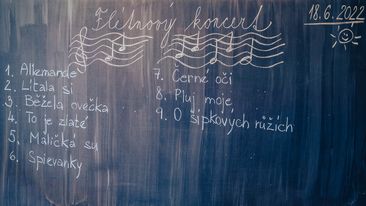 Flétnový koncert
18.6.2022
1. Allemande
2. Lítala si
3. Běžela ovečka
4. To je zlaté
5. Maličká su
6. Spievanky
7. Černé oči
8. Pluj moje
9. O šípkových růžích